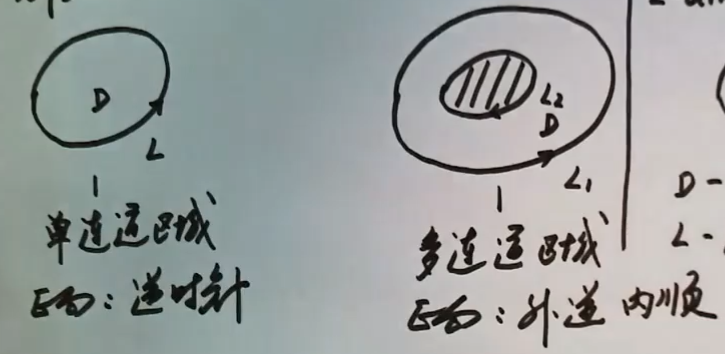 D
L
单连通区域
正向：逆时针
L₂
D
L₁
多连通区域
正向：外逆内顺
D-
L-